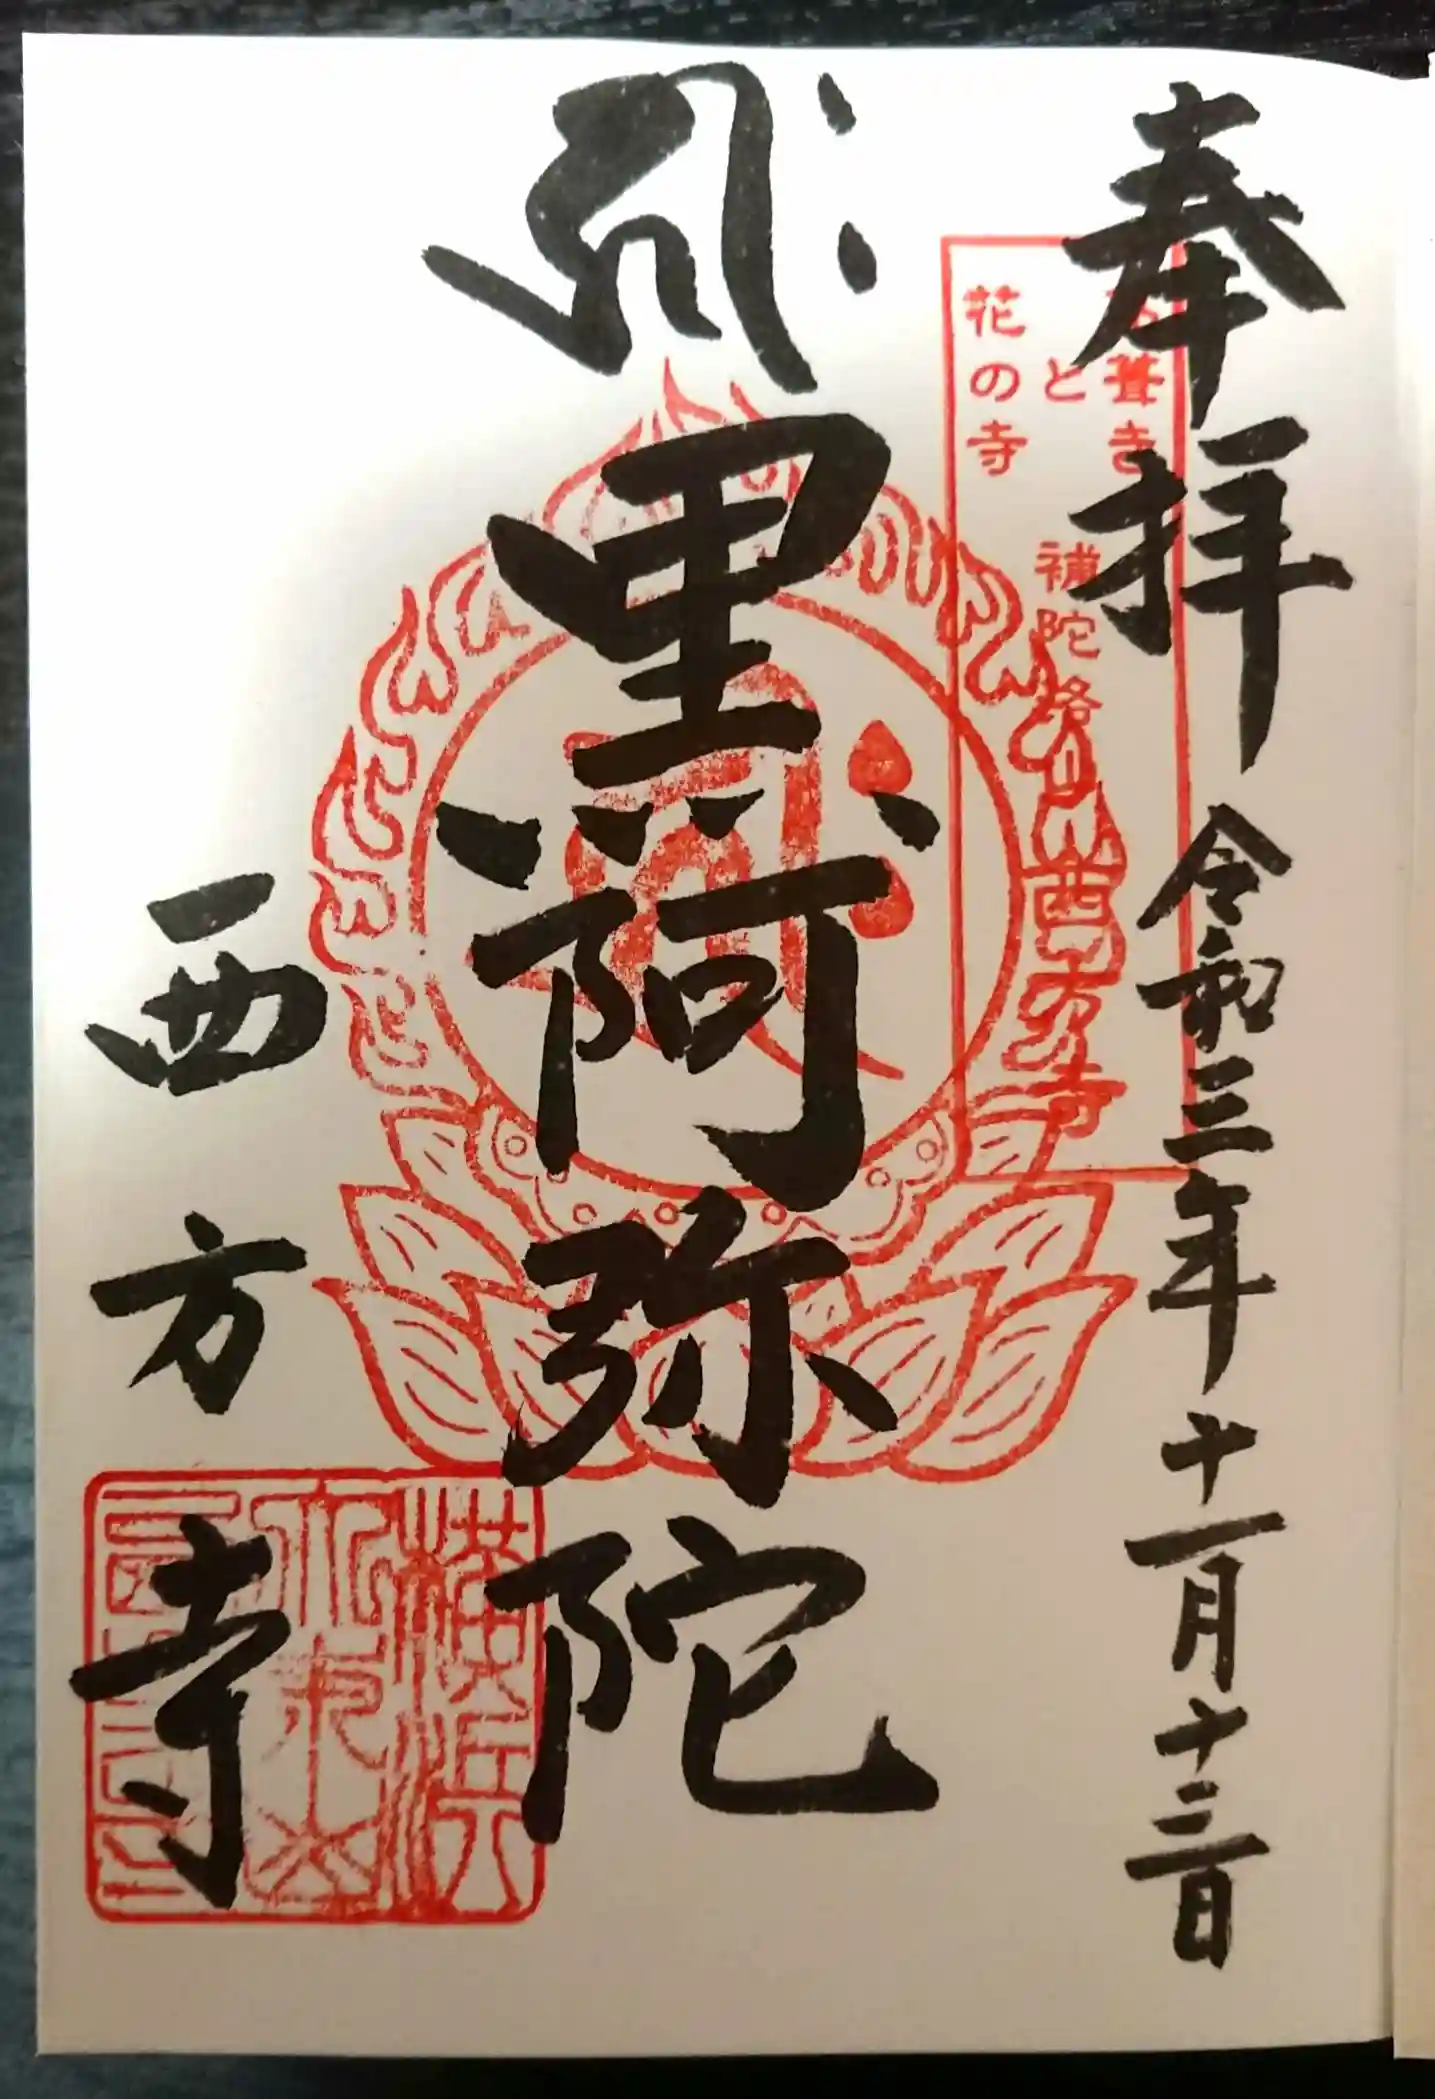 奉拝 令和三年十一月十三日
葺寺
と
花の寺
補陀洛山西方寺
ह्रीः
黒阿弥陀
西方寺